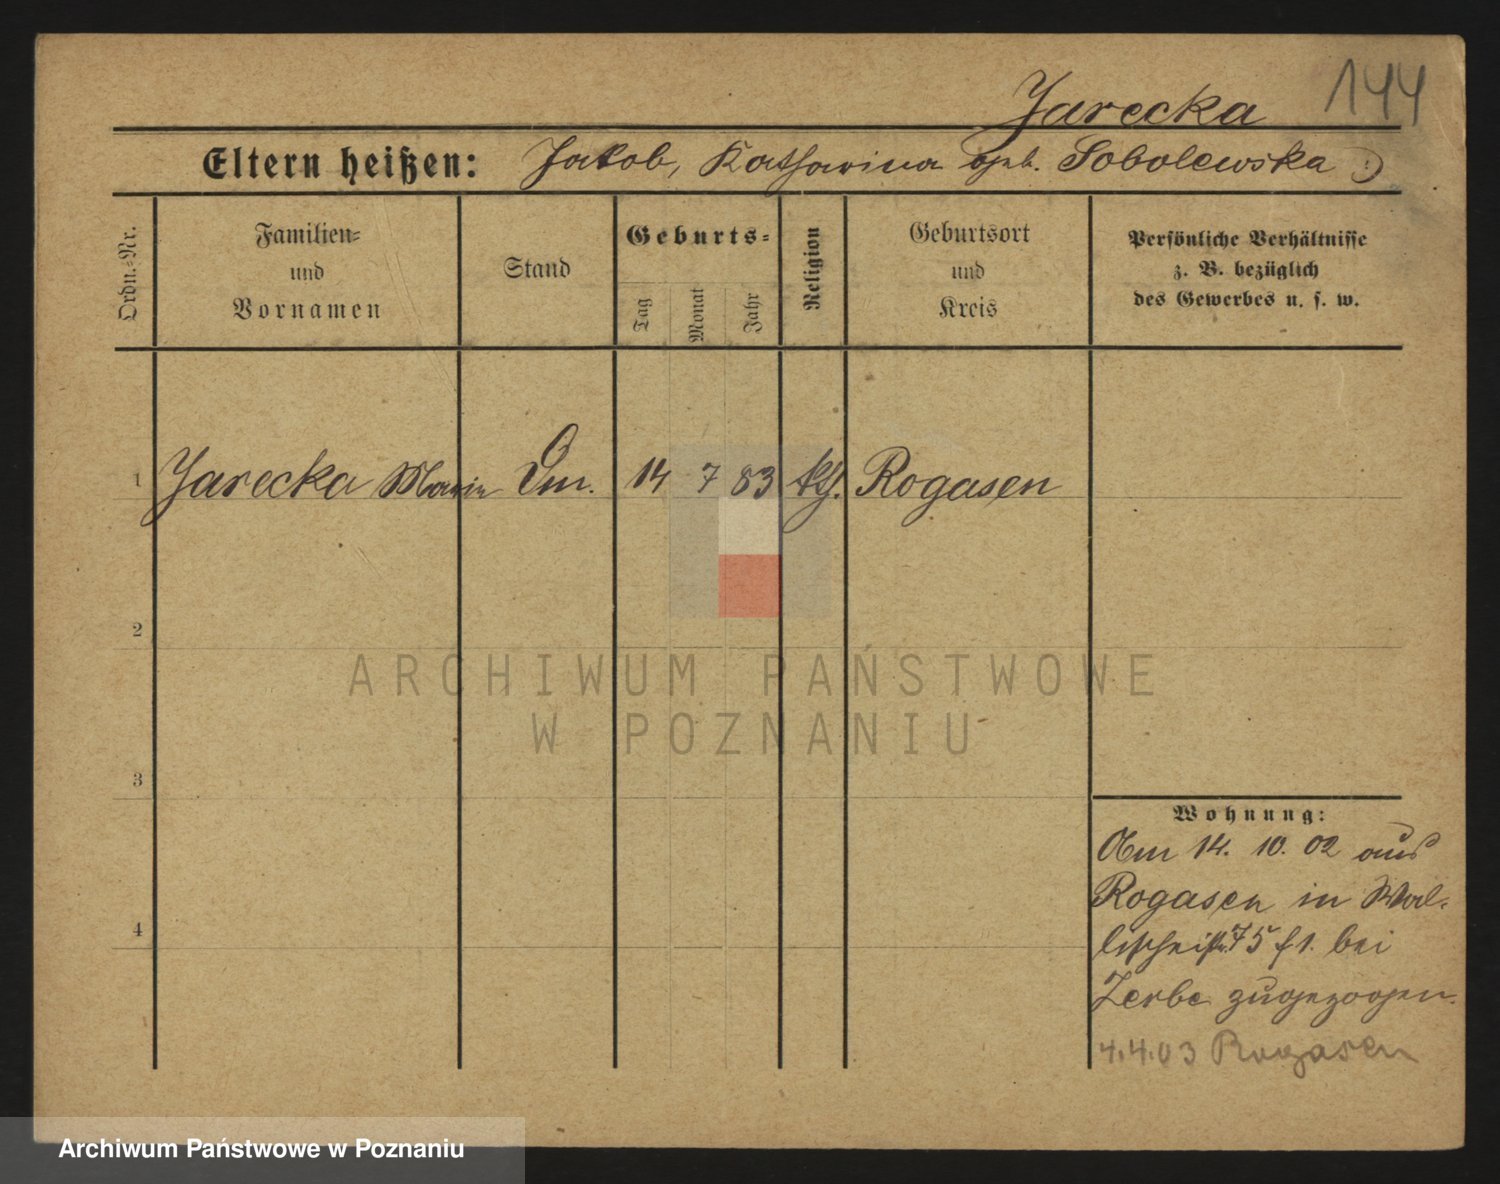 144
Jarecka
Eltern heißen: Jakob, Katharina geb. Sobolewska
Ordn.-Nr.
Familien-
und
Vornamen
Stand
Geburts-
Tag
Monat
Jahr
Religion
Geburtsort
und
Kreis
Persönliche Verhältnisse
z. B. bezüglich
des Gewerbes u. s. w.
1 Jarecka Marie 14 7 83 kth. Rogasen
2
3
4
Wohnung:
Am 14. 10. 02 aus
Rogasen in Wal-
75 f 1. bei
Zerbe zugezogen.
4.4.03 Rogasen
ARCHIWUM PAŃSTWOWE
W POZNANIU
Archiwum Państwowe w Poznaniu